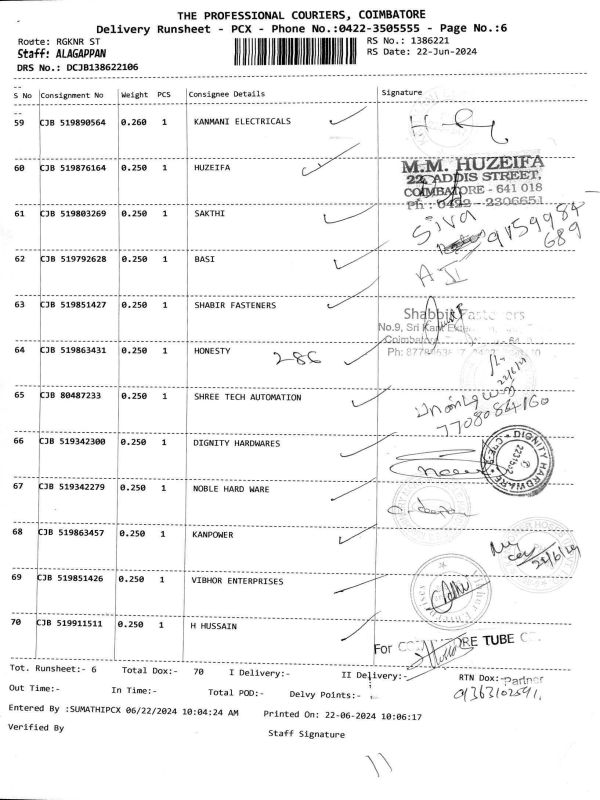 THE PROFESSIONAL COURIERS, COIMBATORE
Delivery Runsheet - PCX - Phone No.:0422-3505555 - Page No.:6
Route: RGKNR ST RS No.: 1386221
Staff: ALAGAPPAN RS Date: 22-Jun-2024
DRS No.: DCJB138622106
S No Consignment No Weight PCS Consignee Details Signature
59 CJB 519890564 0.260 1 KANMANI ELECTRICALS
60 CJB 519876164 0.250 1 HUZEIFA
M.M. HUZEIFA
22, ADDIS STREET,
COIMBATORE - 641 018
Ph : 0422 - 2306651
61 CJB 519803269 0.250 1 SAKTHI
Siva
9159984
689
62 CJB 519792628 0.250 1 BASI
63 CJB 519851427 0.250 1 SHABIR FASTENERS
Shabbir Fasteners
No.9, Sri
64 CJB 519863431 0.250 1 HONESTY 286
65 CJB 80487233 0.250 1 SHREE TECH AUTOMATION
7708084160
66 CJB 519342300 0.250 1 DIGNITY HARDWARES
DIGNITY HARDWARE
67 CJB 519342279 0.250 1 NOBLE HARD WARE
68 CJB 519863457 0.250 1 KANPOWER
69 CJB 519851426 0.250 1 VIBHOR ENTERPRISES
70 CJB 519911511 0.250 1 H HUSSAIN
For TUBE
Tot. Runsheet:- 6 Total Dox:- 70 I Delivery:- II Delivery:- RTN Dox:-
Partner
9363102591.
Out Time:- In Time:- Total POD:- Delvy Points:-
Entered By :SUMATHIPCX 06/22/2024 10:04:24 AM Printed On: 22-06-2024 10:06:17
Verified By Staff Signature